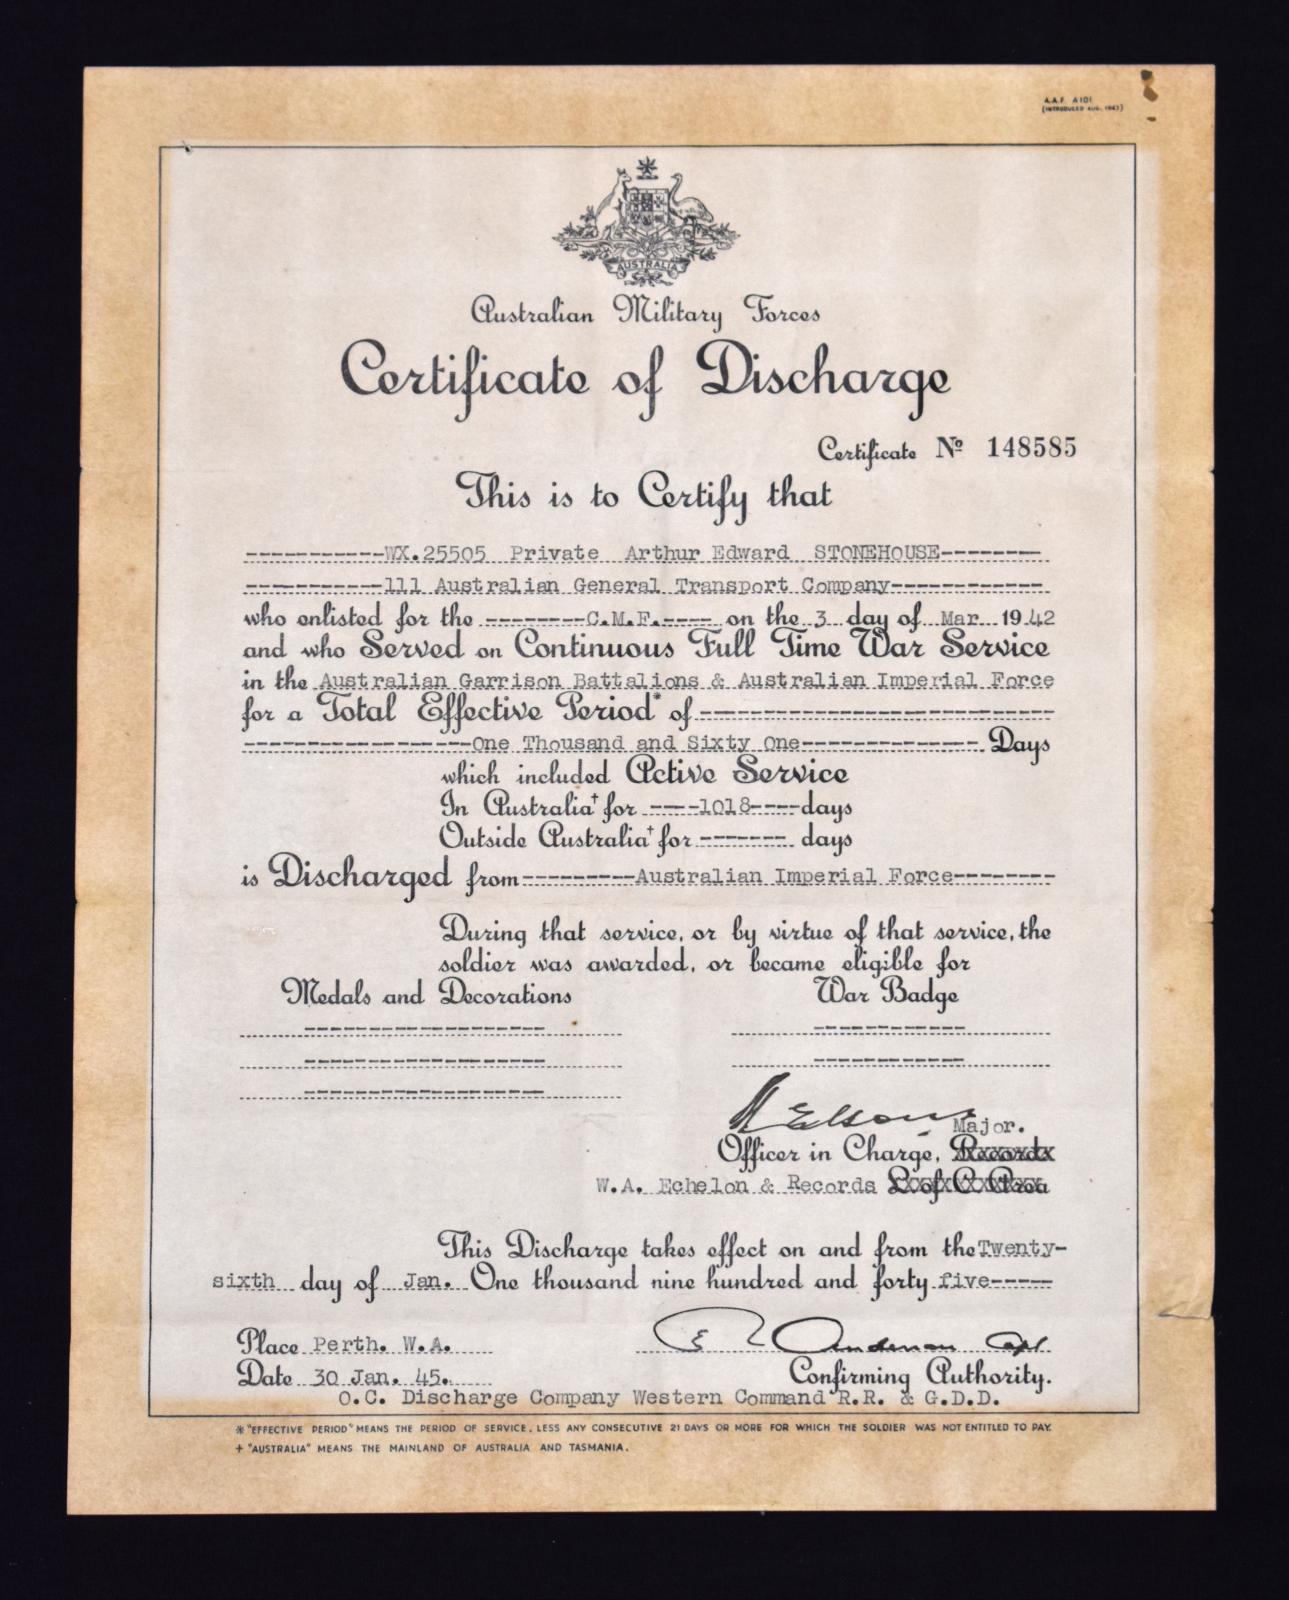 A.A.F. A101
(INTRODUCED AUG. 1943)
AUSTRALIA
Australian Military Forces
Certificate of Discharge
Certificate No 148585
This is to Certify that
-----------WX.25505 Private Arthur Edward STONEHOUSE--------
-----------111 Australian General Transport Company------------
who enlisted for the --------C.M.F.---- on the 3 day of Mar 1942
and who Served on Continuous Full Time War Service
in the Australian Garrison Battalions & Australian Imperial Force
for a Total Effective Period* of ----------------------------
------------------One Thousand and Sixty One-------------- Days
which included Active Service
In Australia† for ----1018---- days
Outside Australia† for ------- days
is Discharged from ---------Australian Imperial Force--------
During that service, or by virtue of that service, the
soldier was awarded, or became eligible for
Medals and Decorations War Badge
------------------- ------------
------------------- ------------
-------------------
Major.
Officer in Charge, Records
W.A. Echelon & Records L of C Area
This Discharge takes effect on and from the Twenty-
sixth day of Jan. One thousand nine hundred and forty five-----
E Anderson Capt
Place Perth. W.A.
Date 30 Jan. 45. Confirming Authority.
O.C. Discharge Company Western Command R.R. & G.D.D.
* "EFFECTIVE PERIOD" MEANS THE PERIOD OF SERVICE, LESS ANY CONSECUTIVE 21 DAYS OR MORE FOR WHICH THE SOLDIER WAS NOT ENTITLED TO PAY.
+ "AUSTRALIA" MEANS THE MAINLAND OF AUSTRALIA AND TASMANIA.